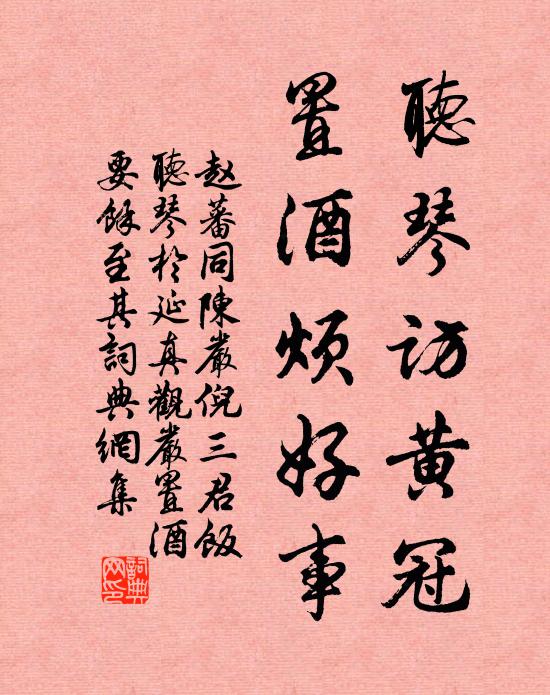 聽琴訪黃冠
置酒煩好事
赵蕃同陳嚴倪三君飯
聽琴於延真觀嚴置酒
要餘至其詞典網集
詞典
网印